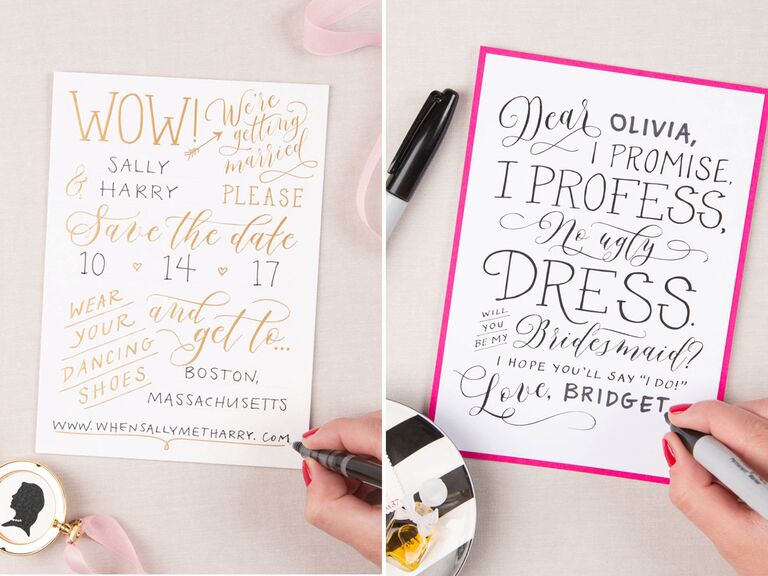 WOW!
We're
getting
married
SALLY
& HARRY
PLEASE
Save the date
10 ♡ 14 ♡ 17
WEAR
YOUR
DANCING
SHOES
and
get to...
BOSTON,
MASSACHUSETTS
WWW.WHENSALLYMETHARRY.COM
Dear OLIVIA,
I PROMISE,
I PROFESS,
No ugly
DRESS.
WILL
YOU
BE MY
Bridesmaid?
I HOPE YOU'LL SAY "I DO!"
Love, BRIDGET